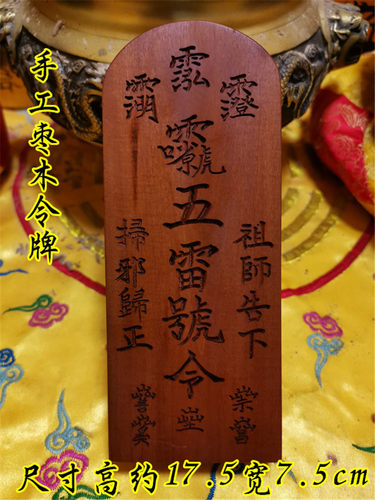 手工枣木令牌
祖師告下
五雷號令
掃邪歸正
尺寸高约17.5宽7.5cm